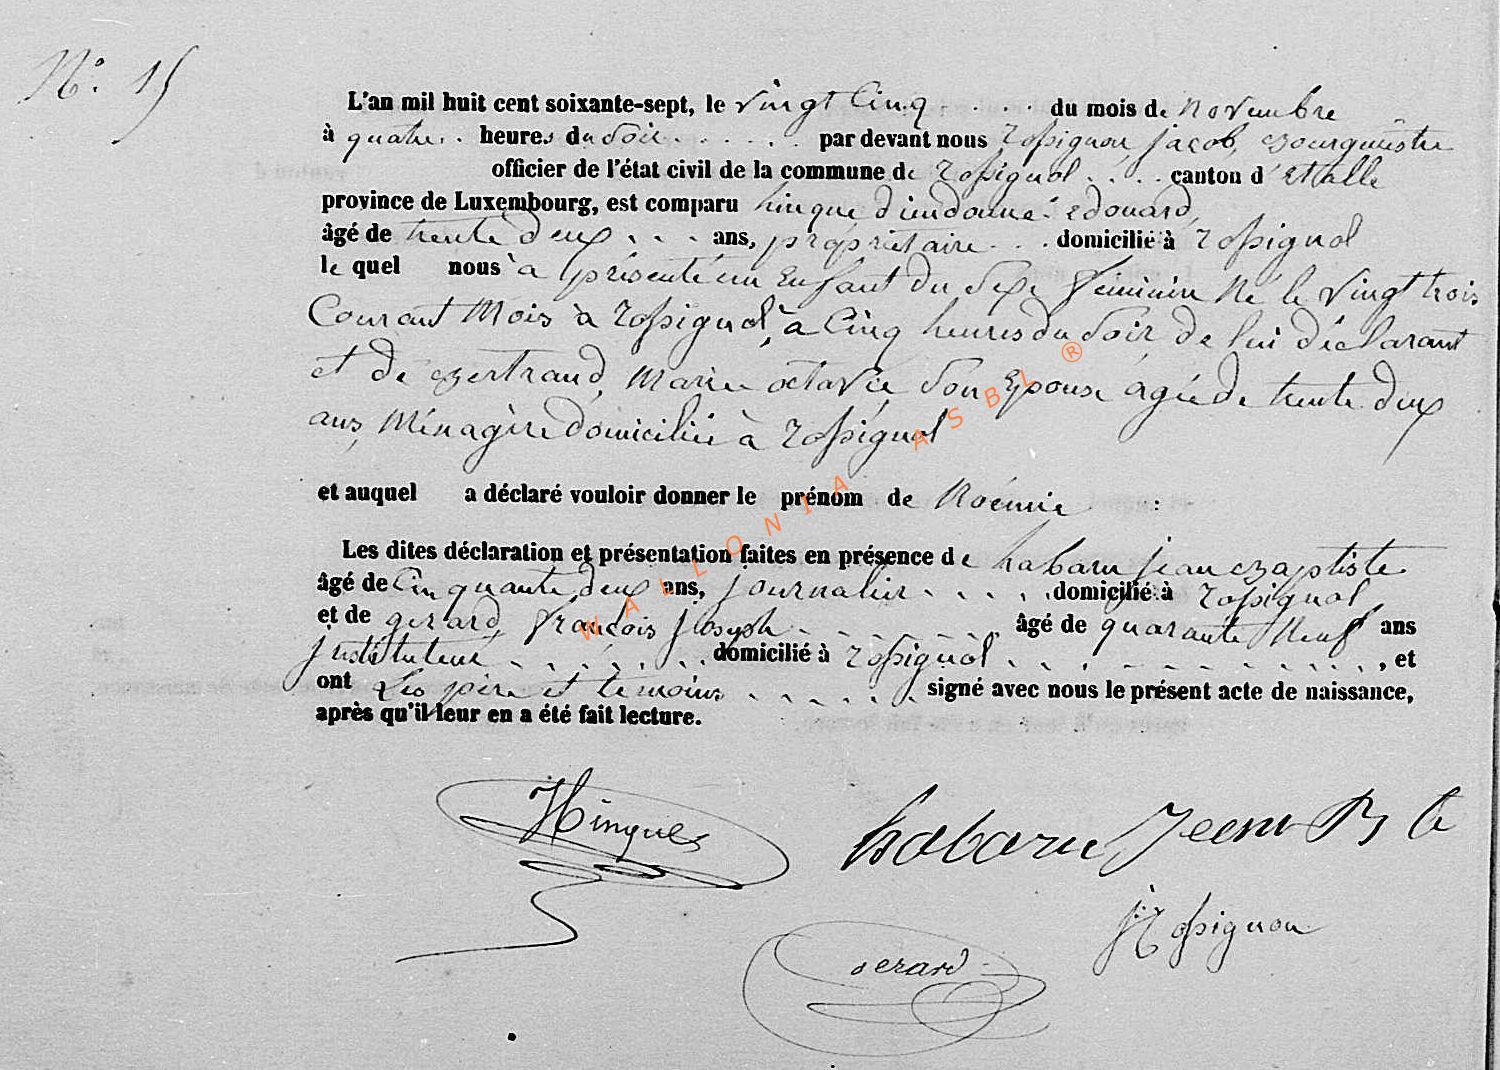 N.° 15
L'an mil huit cent soixante-sept, le vingt Cinq . . . . du mois de Novembre
à quatre . . heures du Soir . . . . . . par devant nous Rossignon, jacob, Bourgmestre
officier de l'état civil de la commune de Rossignol . . . . canton d'Etalle
province de Luxembourg, est comparu hinque dieudonné edouard,
âgé de trente deux . . . ans, propriétaire . . . domicilié à Rossignol
le quel nous a présenté un Enfant du Sexe féminin Né le vingt trois
Courant Mois à Rossignol, à Cinq heures du Soir, de lui déclarant
et de Bertrand, Marie octavie Son Epouse agée de trente deux
ans, Ménagère domiciliée à Rossignol
et auquel a déclaré vouloir donner le prénom de Noémie :
Les dites déclaration et présentation faites en présence de habaru jean Baptiste
âgé de Cinquante deux ans, journalier . . . . . domicilié à Rossignol
et de gerard, françois joseph . . . . . . . âgé de quarante Neuf ans
justituteur . . . . . . . domicilié à Rossignol . . . . . . . . . . . . , et
ont Les père et temoins . . . . . . signé avec nous le présent acte de naissance,
après qu'il leur en a été fait lecture.
WALLONIA ASBL ®
Hinques
habaru Jean Bte
J Rossignon
Gerard